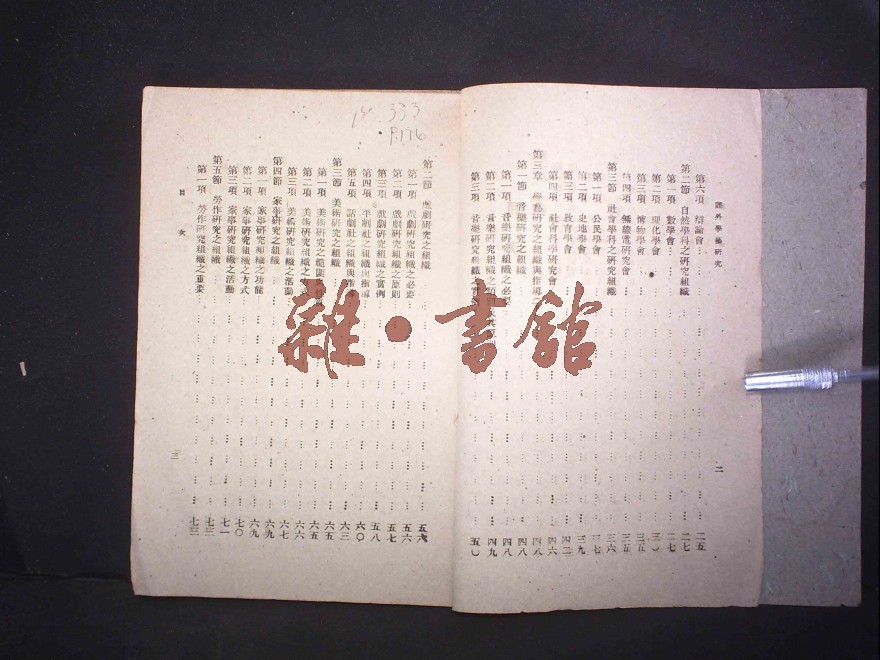 課外學藝研究
二
第六項 辯論會 二五
第二節 自然學科之研究組織 二七
第一項 數學會 二七
第二項 理化學會 三〇
第三項 博物學會 三五
第四項 無線電研究會 三五
第三節 社會學科之研究組織 三六
第一項 公民學會 三七
第二項 史地學會 三九
第三項 教育學會 四二
第四項 社會科學研究會 四六
第三章 學藝研究之組織與指導 四八
第一節 音樂研究之組織 四八
第一項 音樂研究組織之必要 四八
第二項 音樂研究組織之 四九
第三項 音樂研究組織之實例 五〇
14 333
P.176
第二節 戲劇研究之組織 五六
第一項 戲劇研究組織之必要 五六
第二項 戲劇研究組織之原則 五七
第三項 戲劇研究組織之實例 五八
第四項 平劇社之組織與指導 六〇
第五項 話劇社之組織與指導 六三
第三節 美術研究之組織 六五
第一項 美術研究組織之範圍 六五
第二項 美術研究組織之 六六
第三項 美術研究組織之活動 六七
第四節 家事研究之組織 六九
第一項 家事研究組織之功能 六九
第二項 家事研究組織之方式 七〇
第三項 家事研究組織之活動 七一
第五節 勞作研究之組織 七三
第一項 勞作研究組織之重要 七三
目次
三
雜·書館